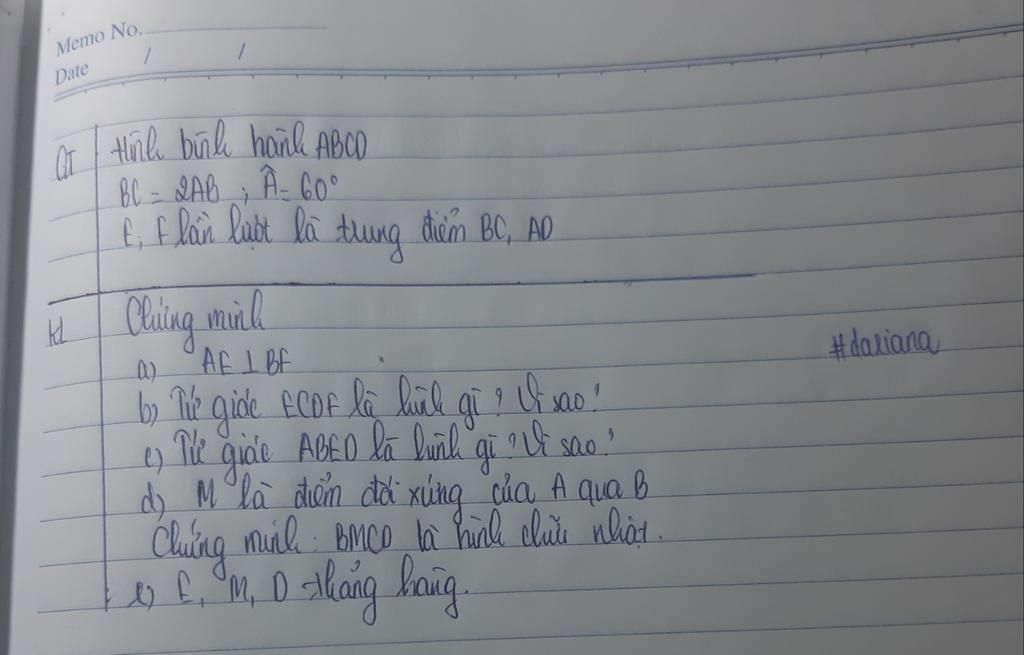 Memo No.
Date / /
GT Hình bình hành ABCD
BC = 2AB ; Â = 60°
E, F lần lượt là trung điểm BC, AD
KL Chứng minh
a) AE ⊥ BF
#dariana
b) Tứ giác ECDF là hình gì? Vì sao?
c) Tứ giác ABED là hình gì? Vì sao?
d) M là điểm đối xứng của A qua B
Chứng minh: BMCD là hình chữ nhật.
e) E, M, D thẳng hàng.